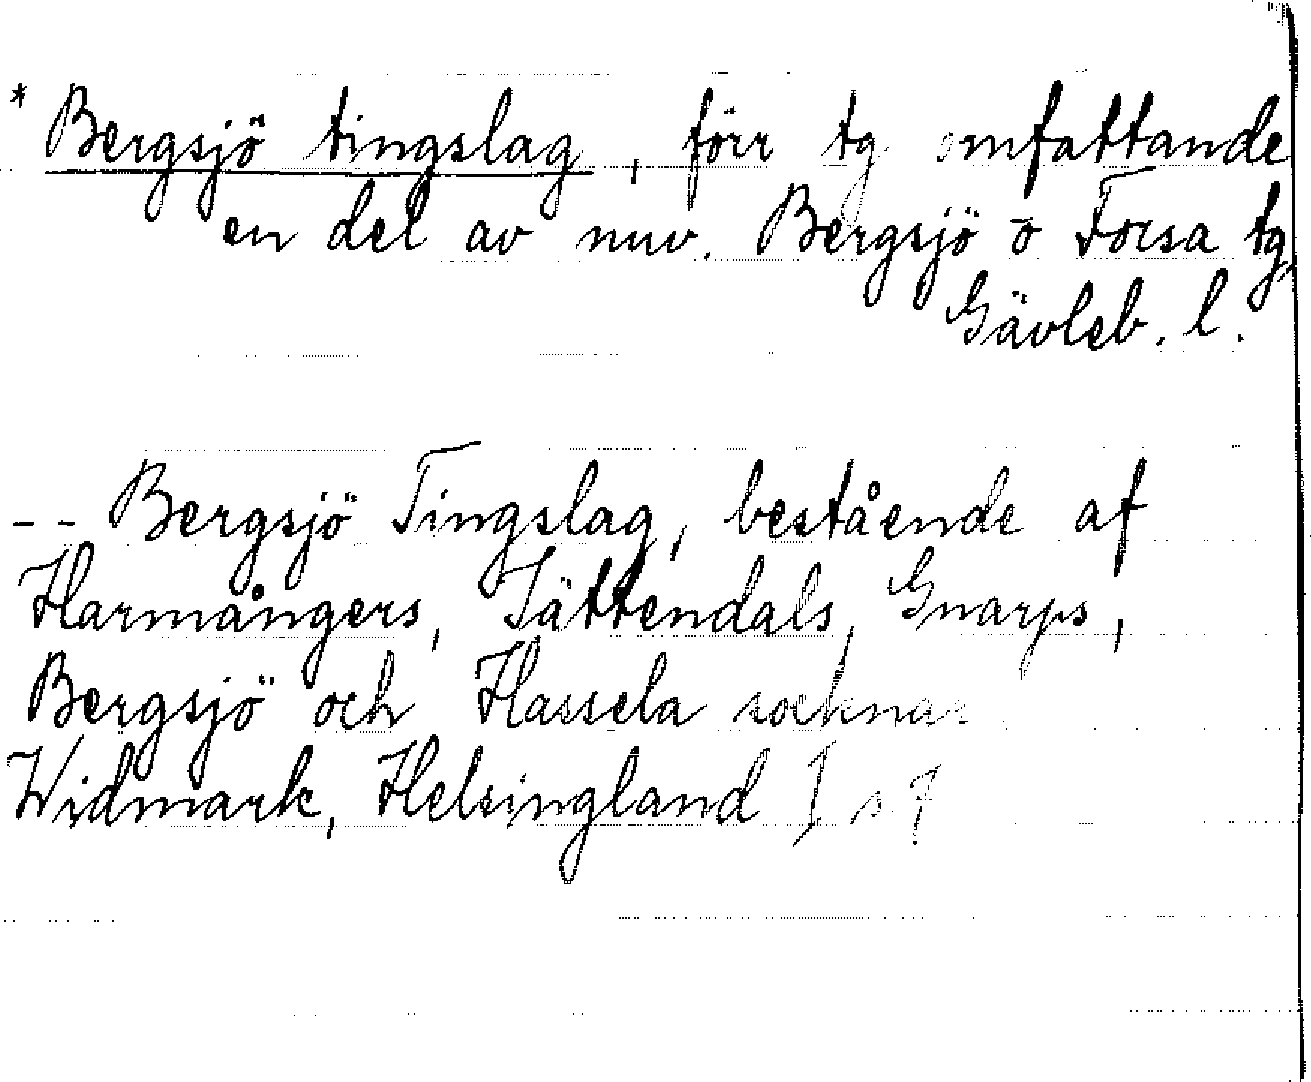 * Bergsjö tingslag, förr tg omfattande
en del av nuv. Bergsjö o Forsa tg,
Gävleb. l.
-- Bergsjö Tingslag, bestående af
Harmångers, Jättendals, Gnarps,
Bergsjö och Hassela socknar
Widmark, Helsingland I s 7